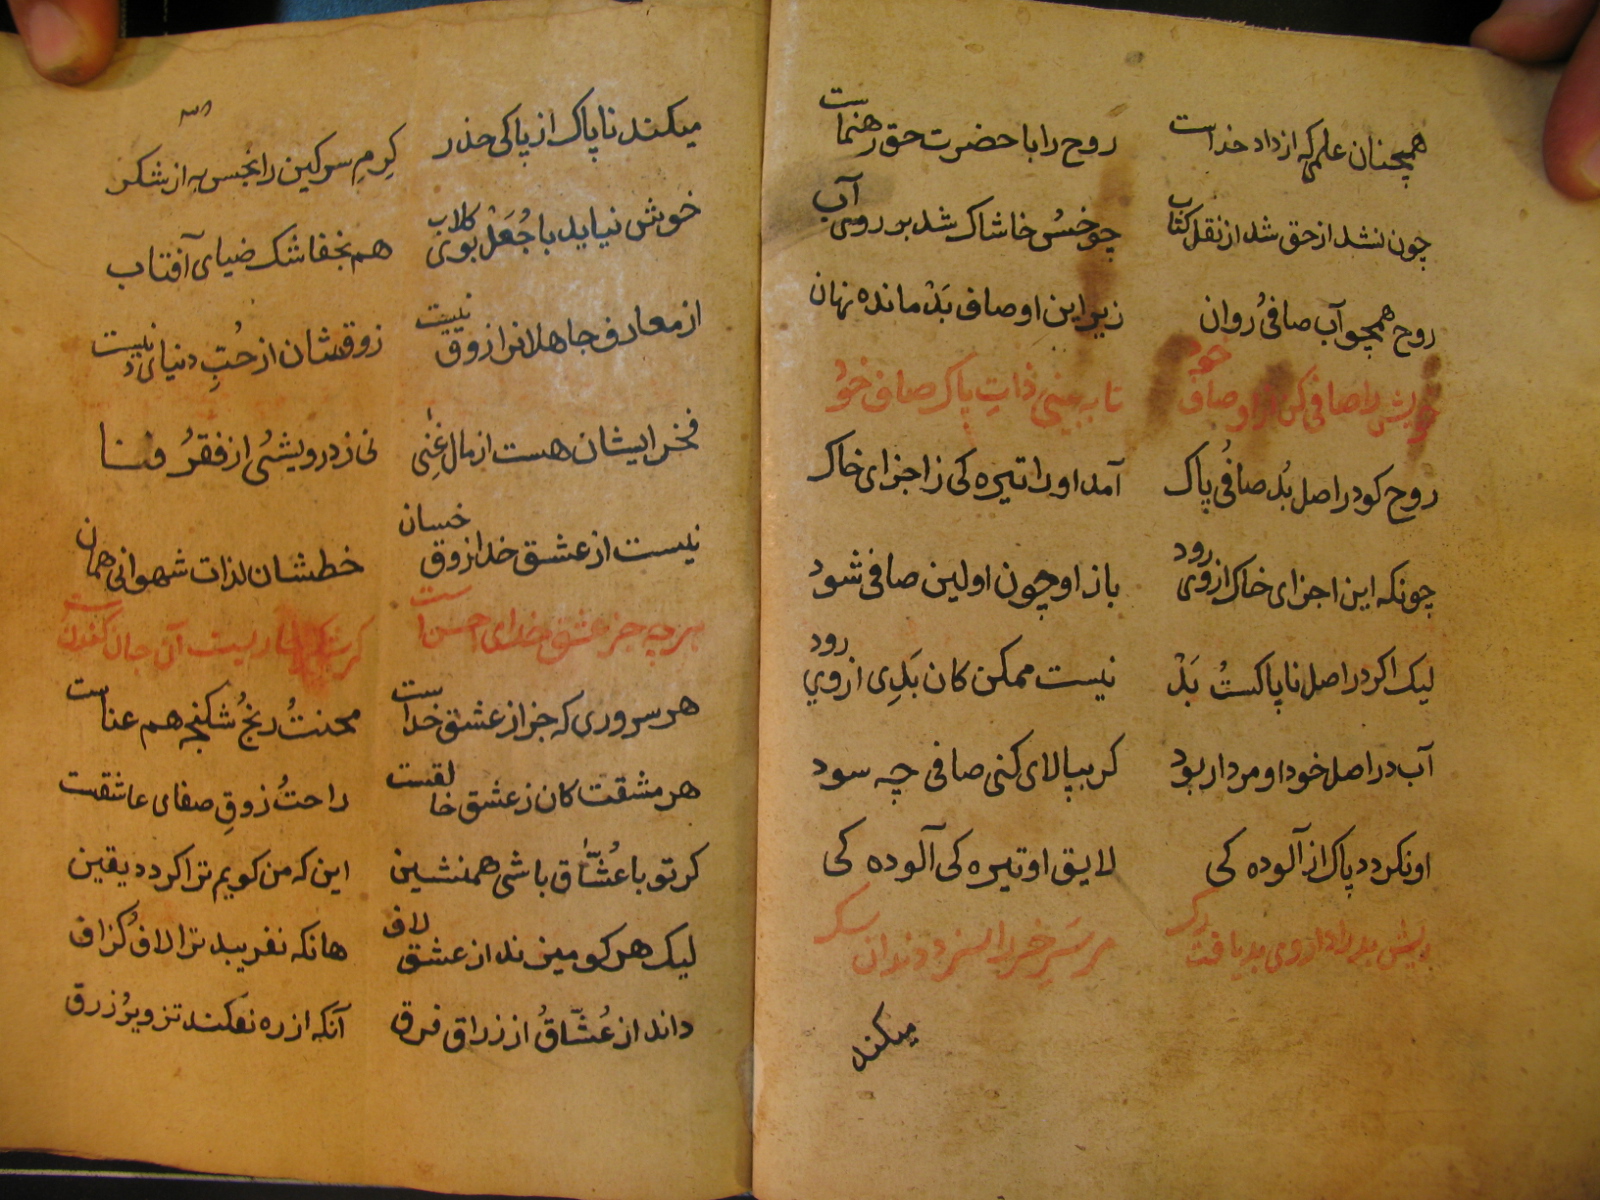 همچنان علمی که از داد خداست روح را با حضرت حق رهنماست
چون نشد از حق شد از نقل کتاب چو خسُ خاشاک شد بر روی آب
روح همچو آب صافیُ روان زیر این اوصاف بَدْ مانده نهان
خویش را صافی کن از اوصاف خود تا به بینی ذاتِ پاک صاف خوُد
روح کو در اصل بُد صافیُ پاک آمد او را تیره کی ز اجزای خاک
چونکه این اجزای خاک از وی رود باز او چون اولین صافی شود
لیک اکر در اصل ناپاکستُ بَدْ نیست ممکن کان بَدِی از وی رود
آب در اصل خود او مردار بود کر بپالای کنی صافی چه سود
او نکردد پاک از آلوده کی لایق او تیره کی آلوده کی
ریش بد را داروی بد یافت رک مر سَرِ خر را سزد دندان سک
میکند
میکند ناپاک از پاکی حذر کِرمِ سرکین را نجس به از شکر
خوش نیاید با جُعَلْ بوی کلاب هم بخفاشک ضیای آفتاب
از معارف جاهلانرا زوق نیست زوقشان از حُبِّ دنیای دنیست
فخر ایشان هست از مال غِنی نی ز درویشیُ از فقرُ فنا
نیست از عشق خدا زوق خسان خطشان لذات شهوانی همان
هر چه جز عشق خدای احسن است کر شکر خاریست آن جان کندن است
هر سروری که جز از عشق خداست محنتُ رنجُ شکنجه هم عناست
هر مشقت کان ز عشق خالقست راحتُ زوقِ صفای عاشقست
کر تو با عُشّاق باشی همنشین این که من کویم ترا کردد یقین
لیک هر کو میزند از عشق لاف هانکه نفریبد ترا لافُ کزاف
داند از عُشّاقُ از زراق فرق آنکه از ره نفکند تزویرُ زرق